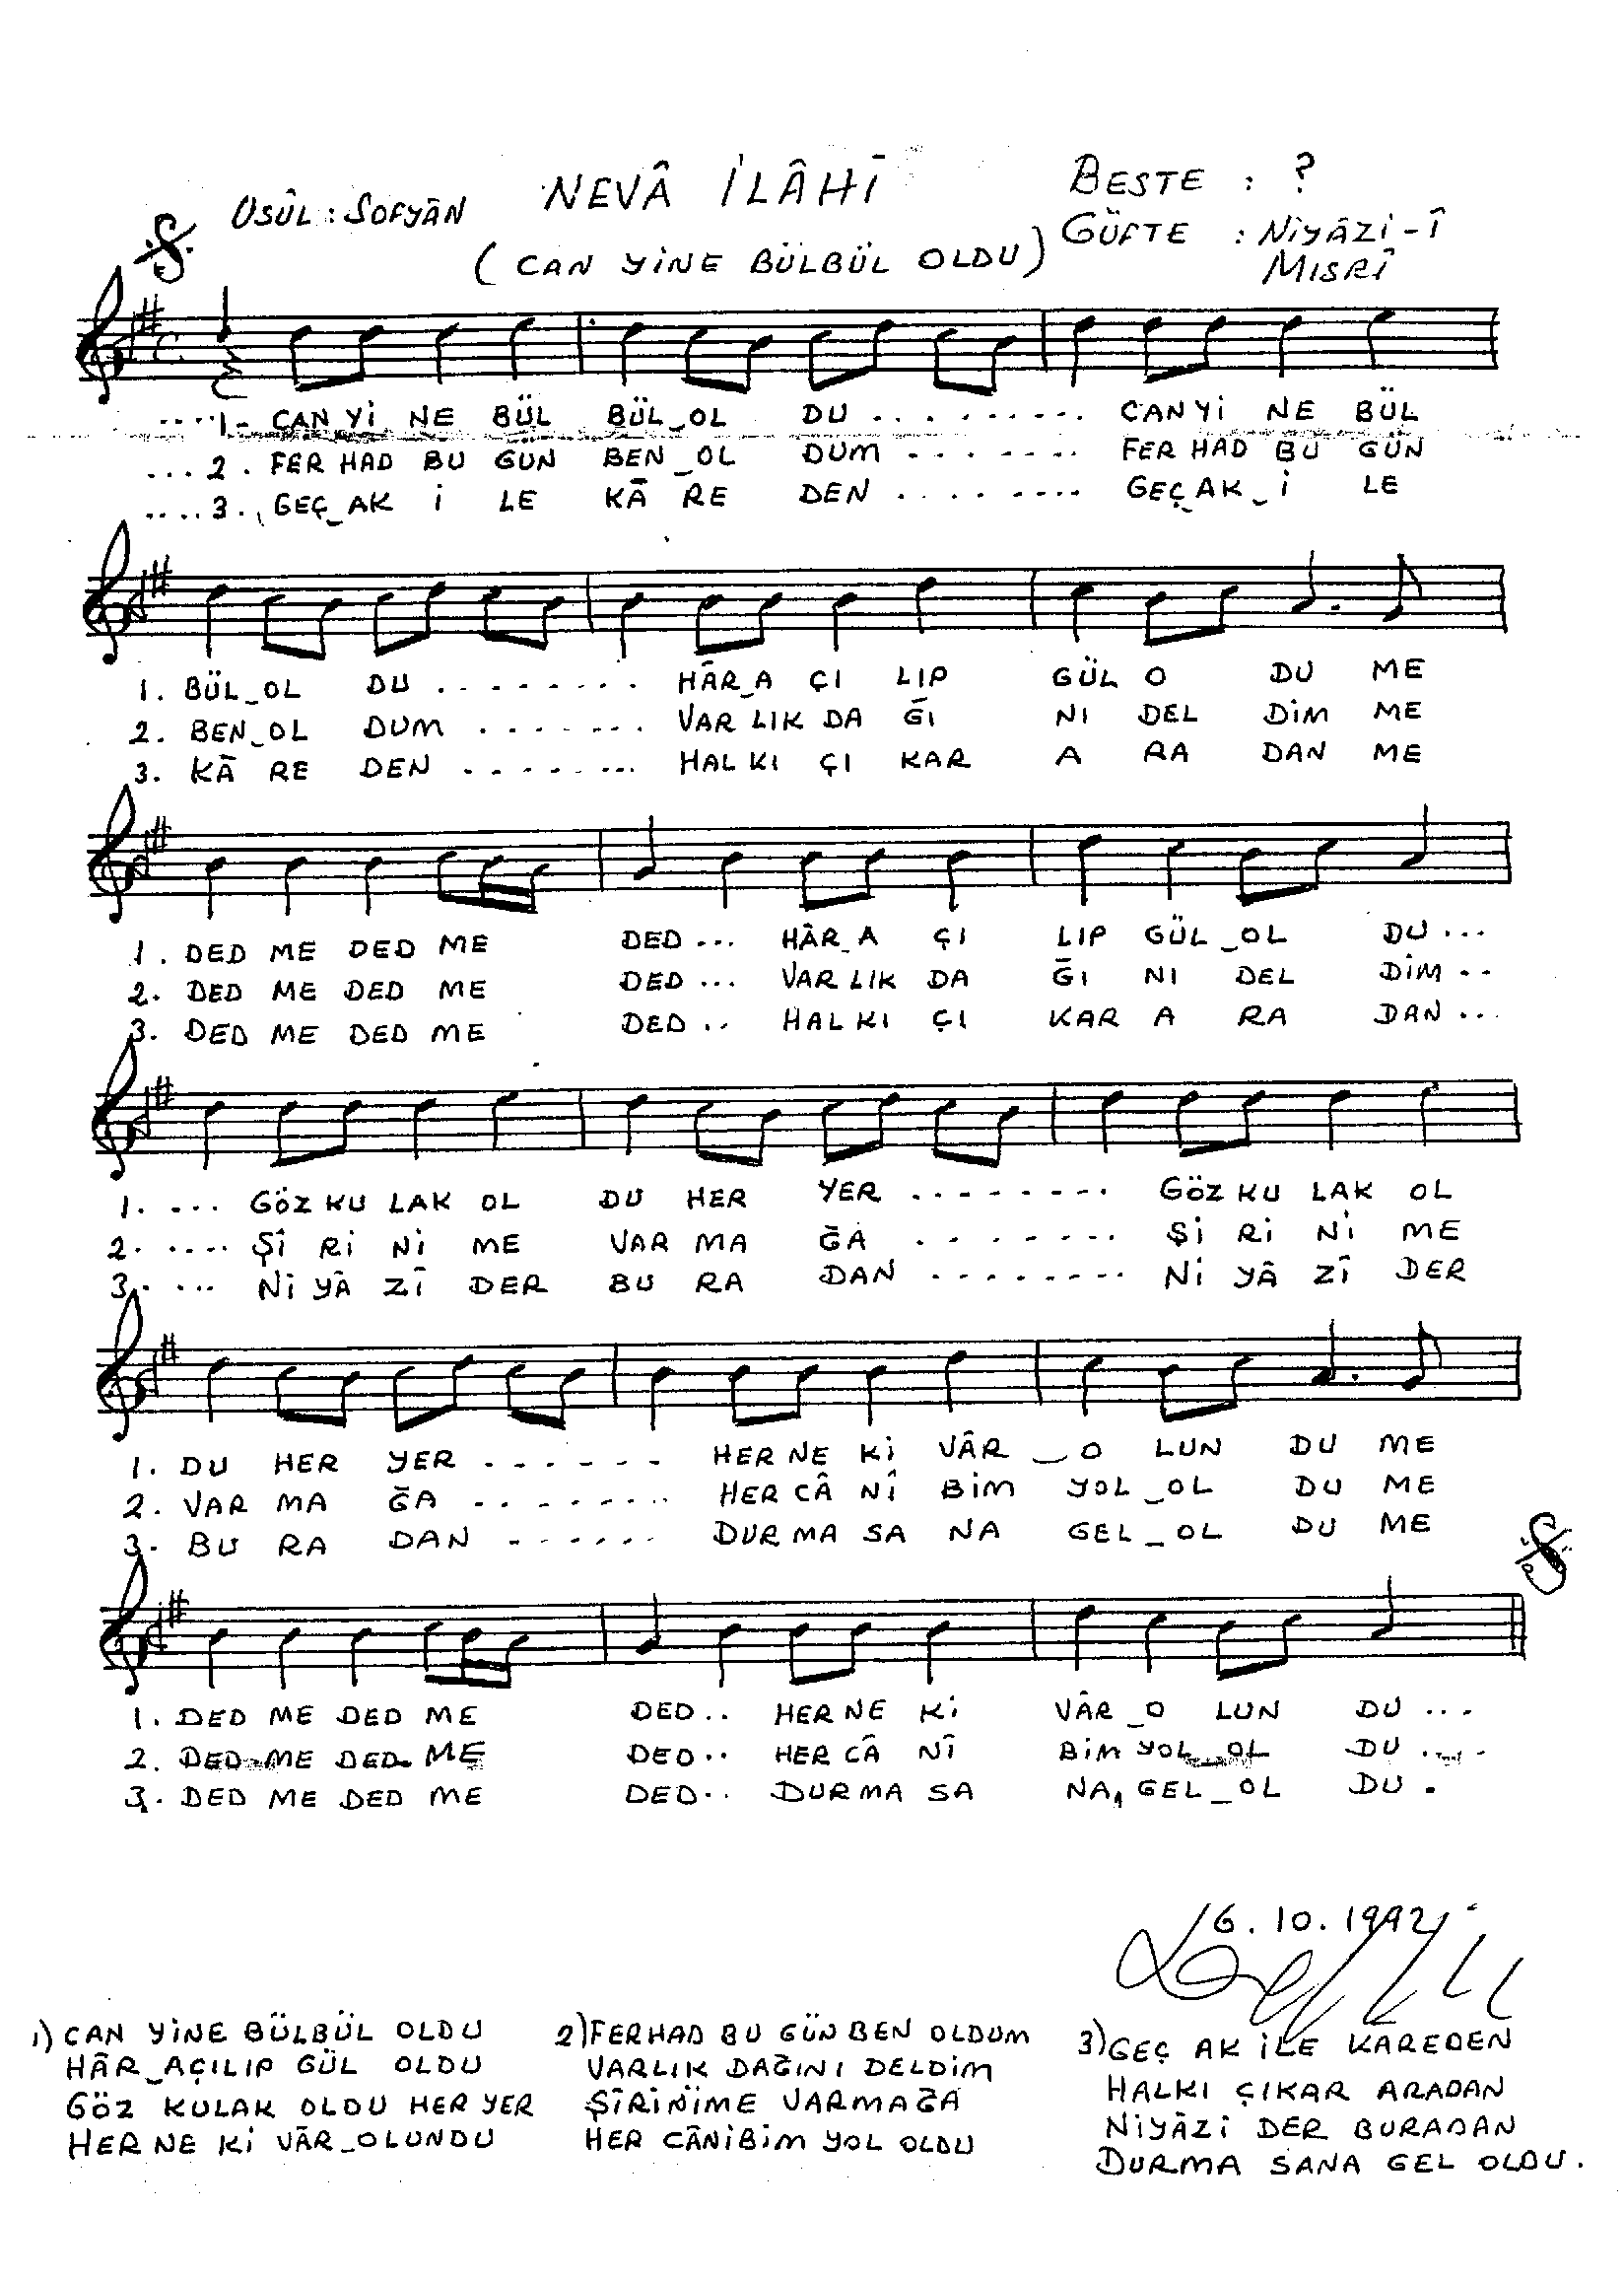 USÛL : SOFYÂN NEVÂ İLÂHİ BESTE : ?
(CAN YİNE BÜLBÜL OLDU) GÜFTE : NİYÂZİ-Î
MISRÎ
....1- CAN Yİ NE BÜL BÜL_OL DU ......... CAN Yİ NE BÜL
...2. FER HAD BU GÜN BEN_OL DUM ....... FER HAD BU GÜN
....3. GEÇ_AK İ LE KÂ RE DEN ........ GEÇ_AK_İ LE
1. BÜL_OL DU ......... HÂR_A ÇI LIP GÜL O DU ME
2. BEN_OL DUM ....... VAR LIK DA ĞI NI DEL DİM ME
3. KÂ RE DEN ........ HAL KI ÇI KAR A RA DAN ME
1. DED ME DED ME DED... HÂR_A ÇI LIP GÜL_OL DU...
2. DED ME DED ME DED... VAR LIK DA ĞI NI DEL DİM..
3. DED ME DED ME DED.. HAL KI ÇI KAR A RA DAN...
1. ... GÖZ KU LAK OL DU HER YER ........ GÖZ KU LAK OL
2. .... Şİ Rİ Nİ ME VAR MA ĞA ........ Şİ Rİ Nİ ME
3. .... Nİ YÂ ZÎ DER BU RA DAN ........ Nİ YÂ ZÎ DER
1. DU HER YER ...... HER NE Kİ VÂR_O LUN DU ME
2. VAR MA ĞA ........ HER CÂ NÎ BİM YOL_OL DU ME
3. BU RA DAN ...... DUR MA SA NA GEL_OL DU ME
1. DED ME DED ME DED.. HER NE Kİ VÂR_O LUN DU...
2. DED ME DED ME DED.. HER CÂ NÎ BİM YOL_OL DU....
3. DED ME DED ME DED.. DUR MA SA NA, GEL_OL DU.
16.10.1992
1) CAN YİNE BÜLBÜL OLDU
HÂR_AÇILIP GÜL OLDU
GÖZ KULAK OLDU HER YER
HER NE Kİ VÂR_OLUNDU
2) FERHAD BU GÜN BEN OLDUM
VARLIK DAĞINI DELDİM
ŞÎRİNİME VARMAĞA
HER CÂNİBİM YOL OLDU
3) GEÇ AK İLE KAREDEN
HALKI ÇIKAR ARADAN
NİYÂZİ DER BURADAN
DURMA SANA GEL OLDU.